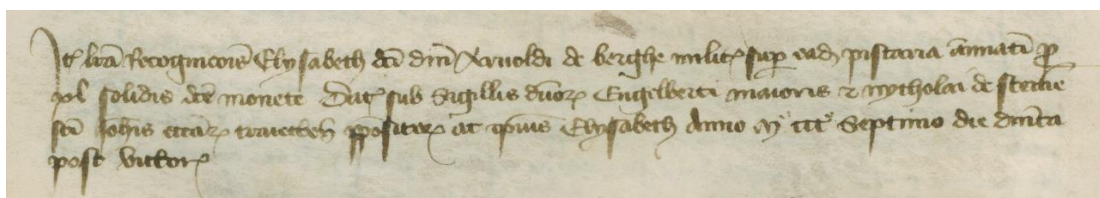 Itē lrā Recognicois Elysabeth dci dni Arnoldi de berghe milit sup ead pistaria annuatī p
xl solidis dce monete Dat sub Sigillis dnor Engelberti maioris z nycholai de
sci Johis eccar traiecteñ ppositor ac Elysabeth Anno m ccc Septimo die
post victor